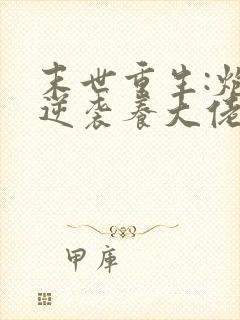 末世重生:炮
逆袭养大佬
甲库